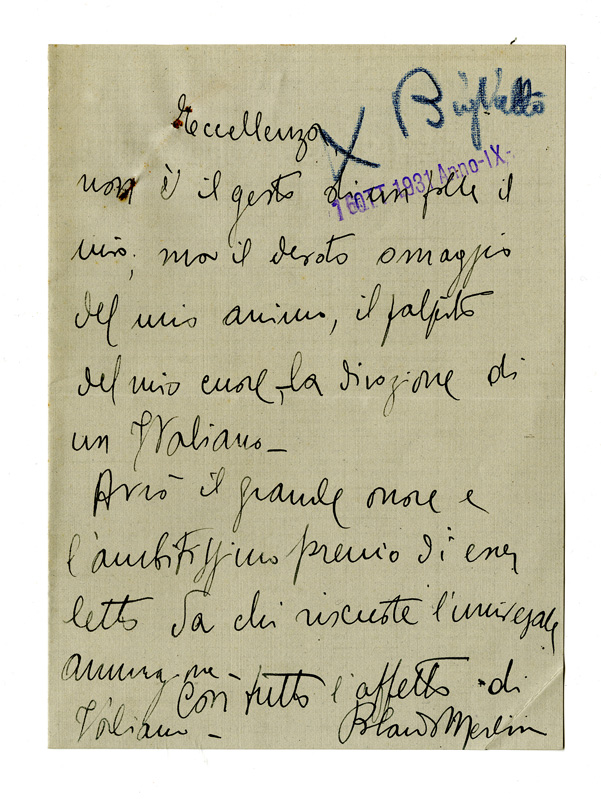 Biglietto
Eccellenza
16 OTT. 1931 Anno-IX-
non è il gesto di un folle il
mio, ma il devoto omaggio
del mio animo, il palpito
del mio cuore, la divozione di
un Italiano -
Avrò il grande onore e
l'ambitissimo premio di esser
letto da chi riscuote l'universale
ammirazione -
Con tutto l'affetto di
Italiano -
Merlin